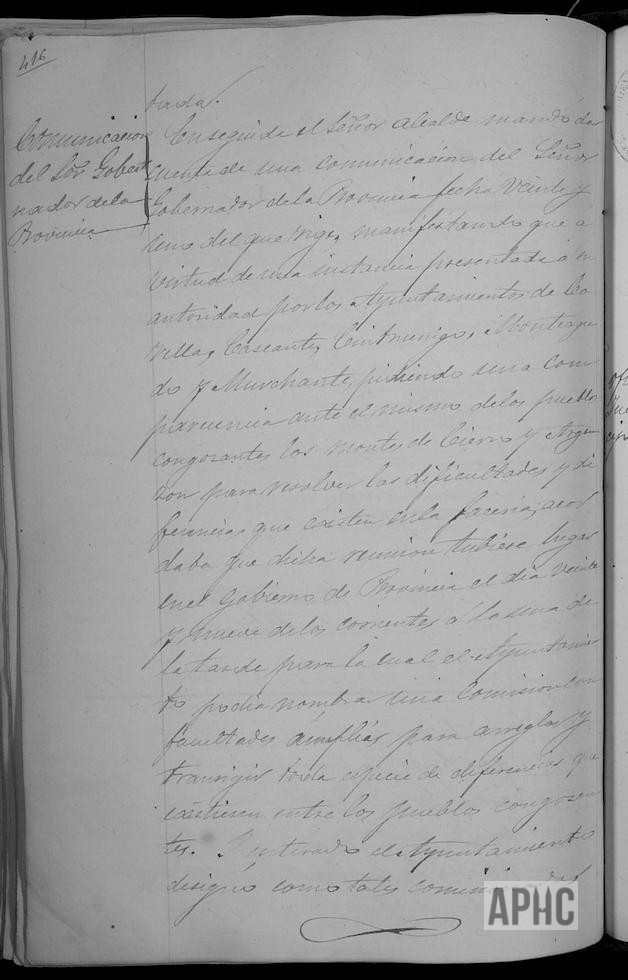 416
Comunicacion
del Sor Gober
nador de la
Provincia
trada.
Enseguida el Señor Alcalde mandó dar
cuenta de una comunicacion del Señor
Gobernador de la Provincia fecha Veinte y
uno del que rige, manifestando que a
virtud de una instancia presentada a su
autoridad por los Ayuntamientos de Co
rella, Cascante, Cintruenigo, Monteagu
do y Murchante, pidiendo una com
parecencia ante el mismo de los pueblos
congozantes los montes de Cierzo y Argen
zon para resolver las dificultades y di
ferencias que existen en la faceria, acor
daba que dicha reunion tubiese lugar
en el Gobierno de Provincia el dia veinte
y nueve de los corrientes á la una de
la tarde para la cual el Ayuntamien
to podia nombrar una Comision con
facultades ámplias para arreglar y
transigir toda especie de diferencias que
existiesen entre los pueblos congozan
tes. Y enterado el Ayuntamiento
designó como tales comisionados
APHC